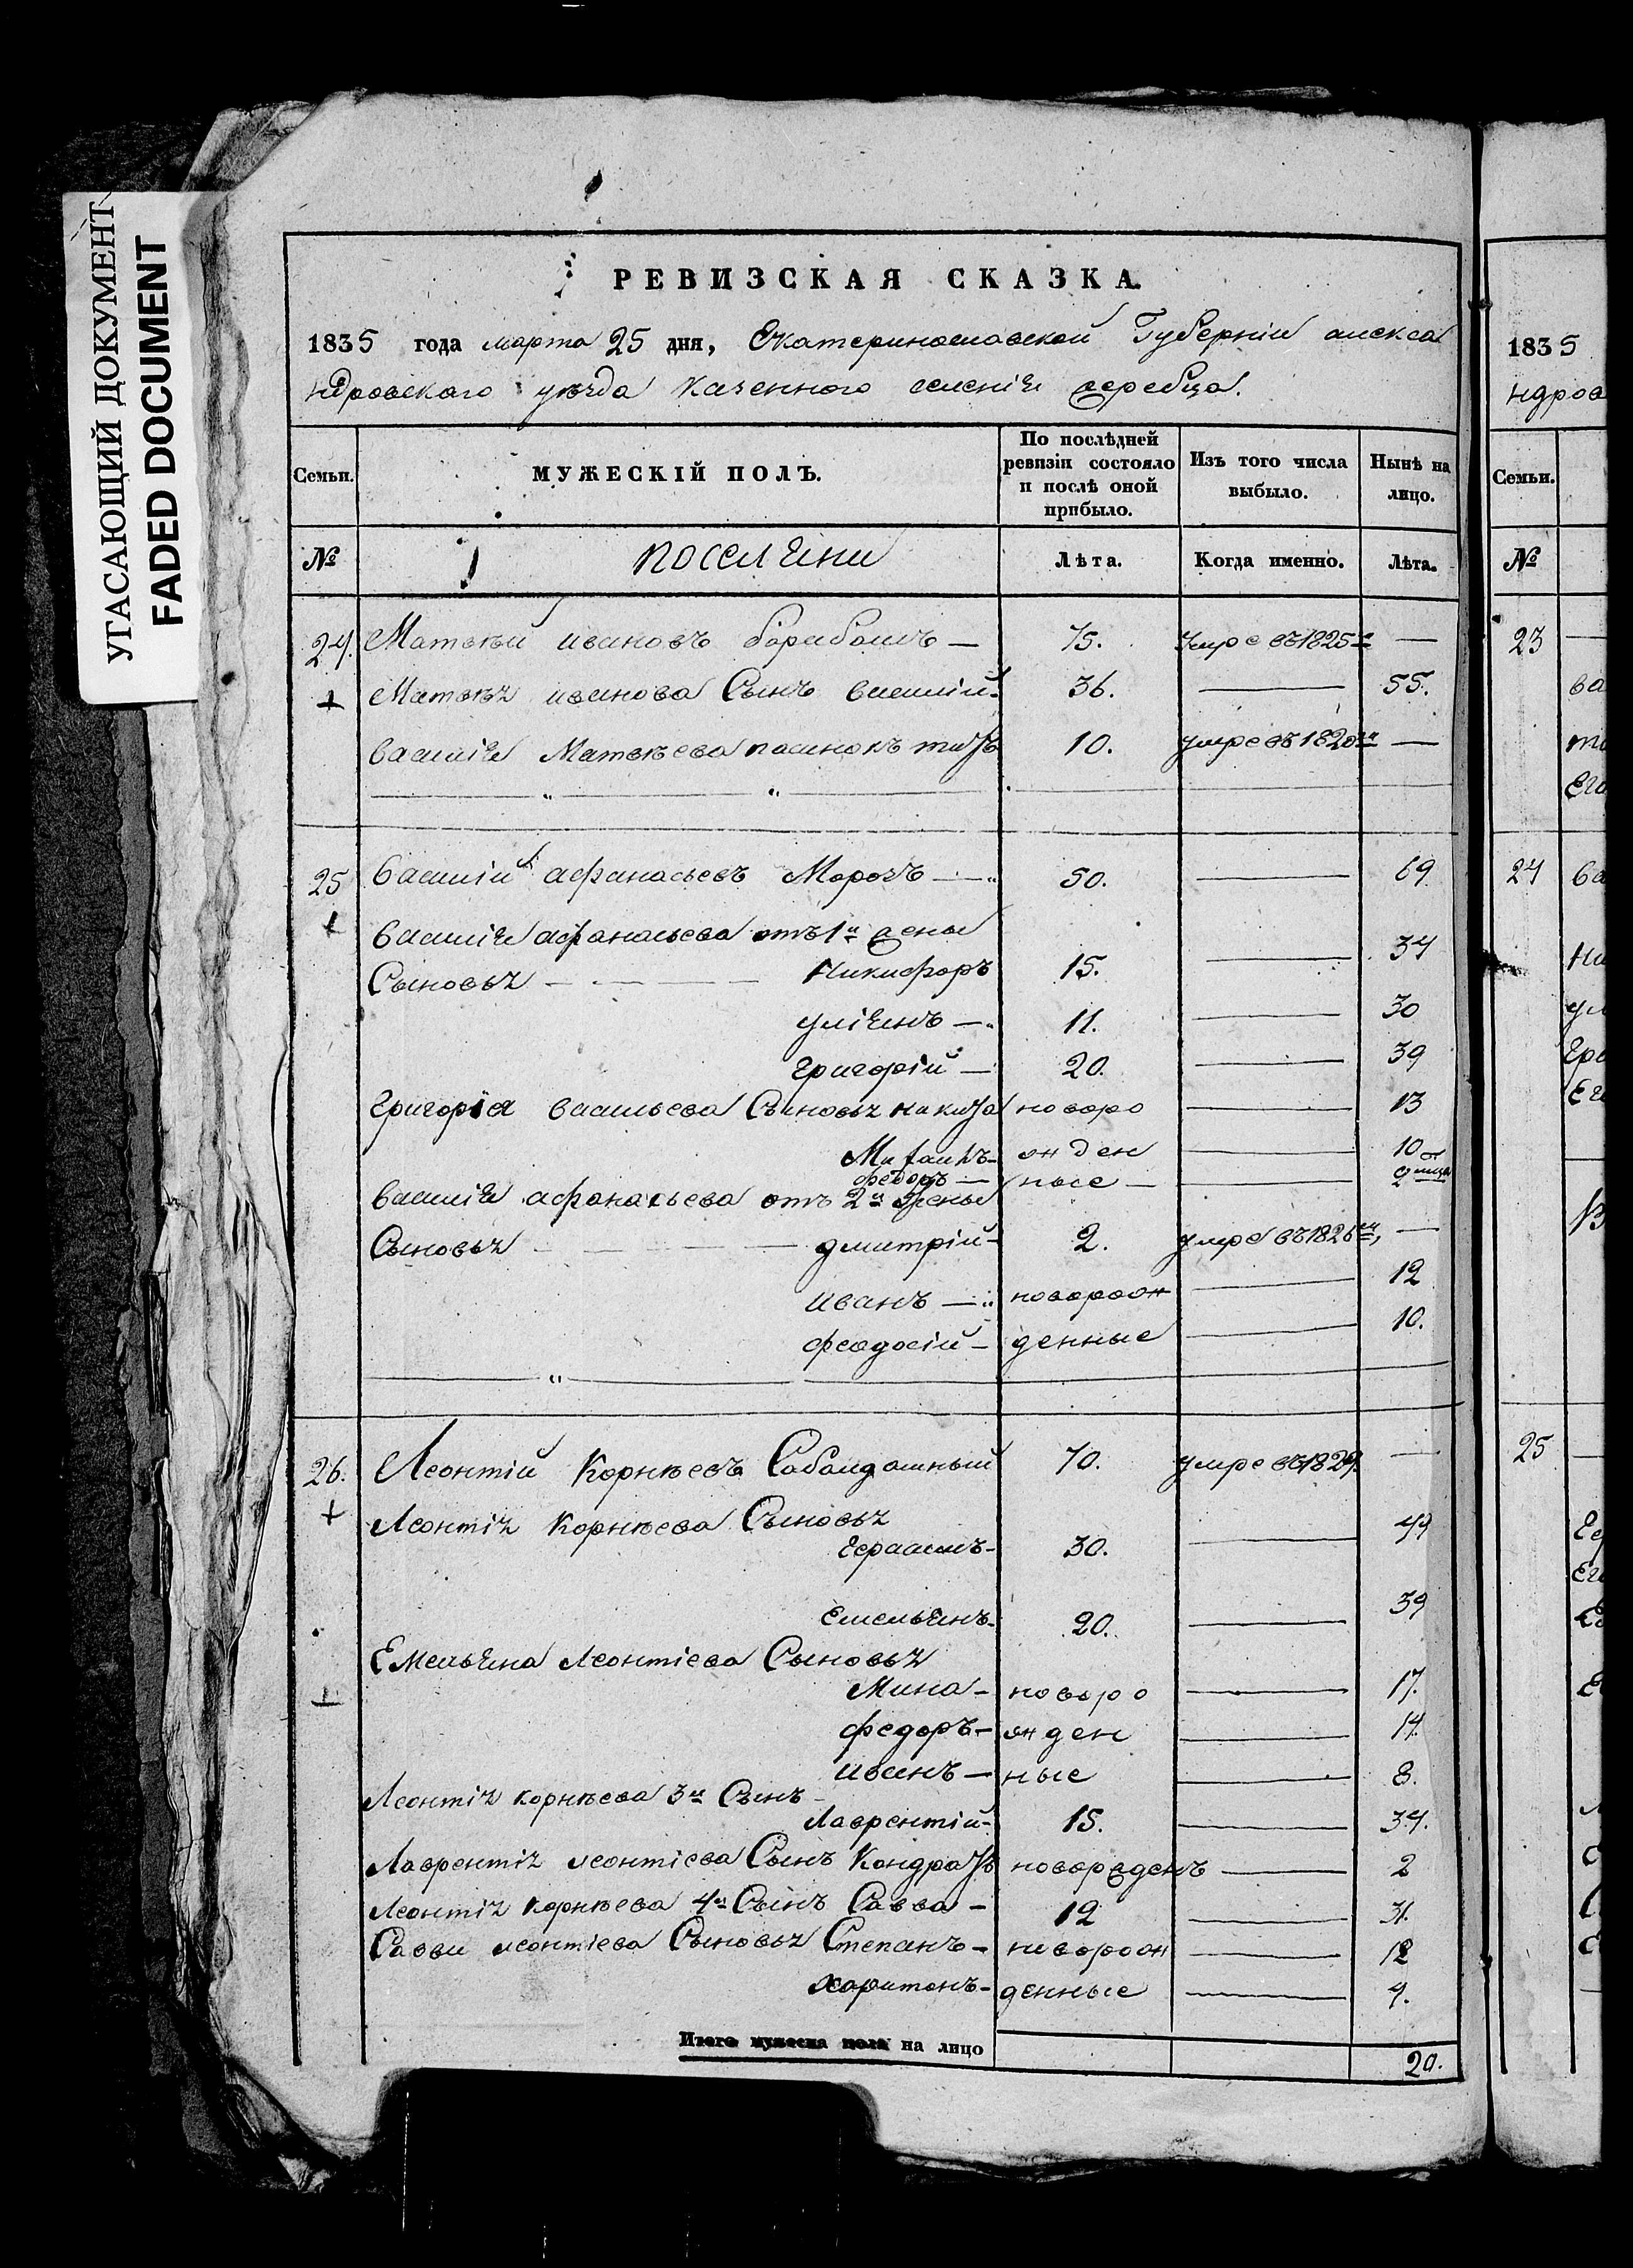 УГАСАЮЩИЙ ДОКУМЕНТ
FADED DOCUMENT
РЕВИЗСКАЯ СКАЗКА.
1835 года марта 25 дня, Екатеринославской Губерніи алекса
ндровского уѣзда казенного селенія жеребца.
Семьи.
МУЖЕСКІЙ ПОЛЪ.
По послѣдней ревизіи состояло и послѣ оной прибыло.
Изъ того числа выбыло.
Нынѣ на лицо.
№
поселяни
Лѣта.
Когда именно.
Лѣта.
24. Матвѣй ивановъ барабашъ — 75. умре въ 1825м —
Матвѣя иванова Сынъ василій 36. — 55.
василія Матвѣева пасинокъ титъ 10. умре въ —
25 василій афанасьевъ Морозъ — 50. — 69
василія афанасьева отъ 1й жены
Сыновья — Никифоръ 15. — 34
уліянъ — 11. — 30
григорій — 20. — 39
григорія васильева Сыновья никита новоро — 13
Михаилъ — жден — 10
федоръ — ные — 2
василія афанасьева отъ 2й жены
Сыновья — дмитрій — 2. умре въ 1826м, —
иванъ — новорож — 12
феодосій — денные — 10.
26. Леонтій Корнѣевъ Сабандашный 70. умре въ 1829. —
Леонтія Корнѣева Сыновья
Герасимъ — 30. — 49
Емельянъ — 20. — 39
Емельяна леонтіева Сыновья
Мина — новоро — 17.
федоръ — жден — 14.
иванъ — ные — 8.
Леонтія корнѣева 3й Сынъ
лаврентій — 15. — 34.
Лаврентія леонтіева Сынъ Кондратъ новорожденъ — 2
Леонтія корнѣева 4й Сынъ Савва — 12 — 31.
Саввы леонтіева Сыновья Степанъ — новорож — 12
харитонъ — денные — 9.
Итого мужеска пола на лицо 20.
1835
ндров
Семьи.
№
23
ва
Его
24 ва
Ни
ул
Гри
Его
25
Гер
Его